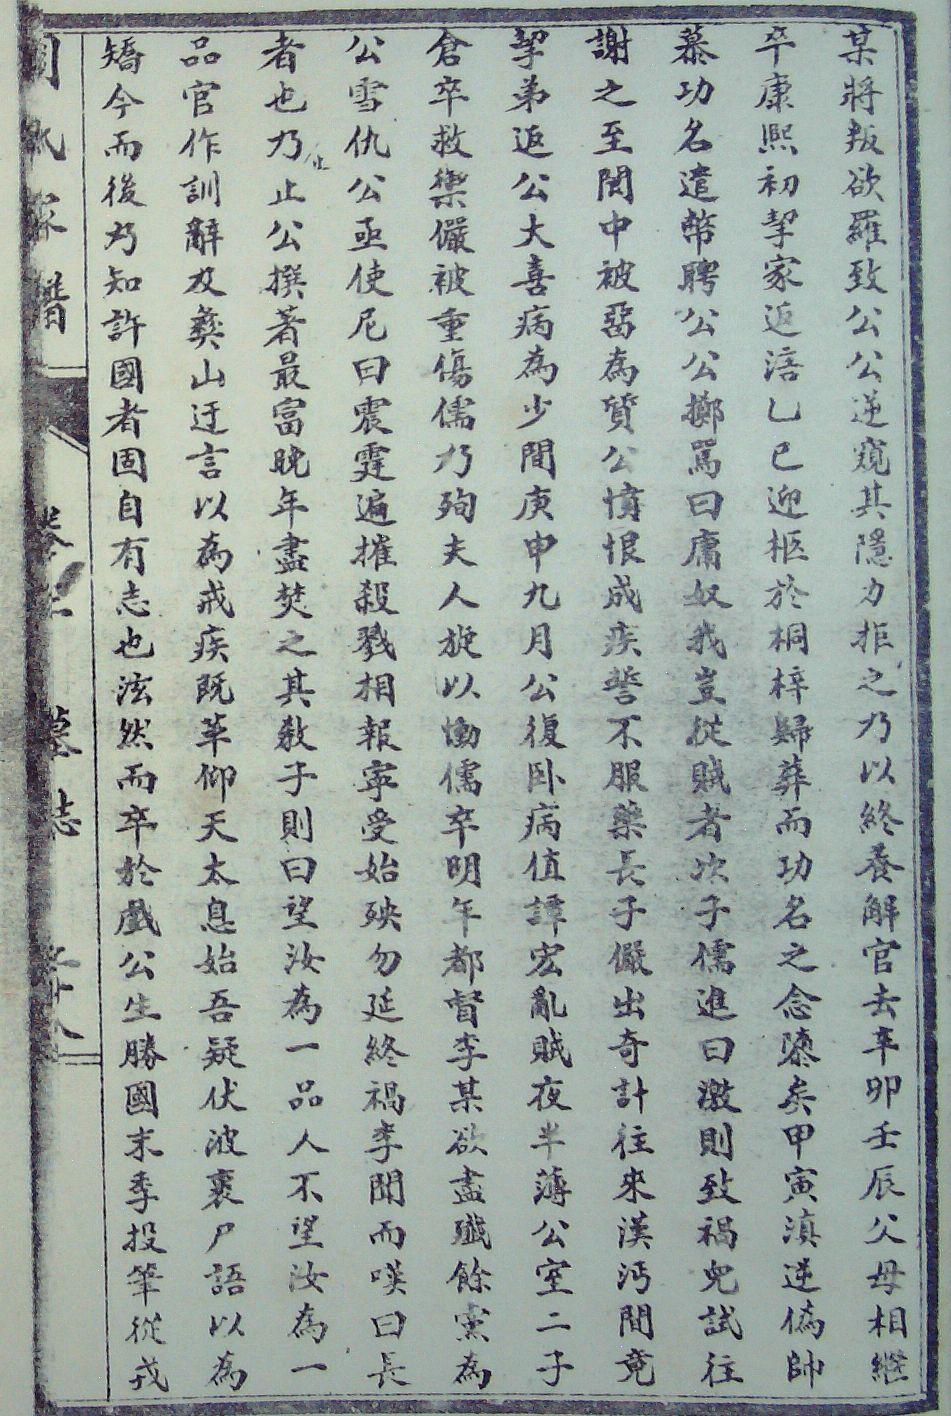 某將叛欲羅致公公逆窺其隱力拒之乃以終養解官去辛卯壬辰父母相繼
卒康熙初挈家返涪乙巳迎柩於桐梓歸葬而功名之念隳矣甲寅滇逆偽帥
慕功名遣幣聘公公擲罵曰庸奴我豈從賊者次子儒進曰激則致禍兒試往
謝之至閬中被惡為質公憤恨成疾誓不服藥長子儼出奇計往來漢沔間竟
挈弟返公大喜病為少間庚申九月公復卧病值譚宏亂賊夜半薄公室二子
倉卒救禦儼被重傷儒乃殉夫人旋以慟儒卒明年都督李某欲盡殲餘黨為
公雪仇公亟使尼曰震霆遍摧殺戮相報寧受始殃勿延終禍李聞而嘆曰長
者也乃止公撰著最富晚年盡焚之其教子則曰望汝為一品人不望汝為一
品官作訓辭及彝山迂言以為戒疾既革仰天太息始吾疑伏波裹尸語以為
矯今而後乃知許國者固自有志也泫然而卒於戲公生勝國末季投筆從戎
周氏家譜
墓誌